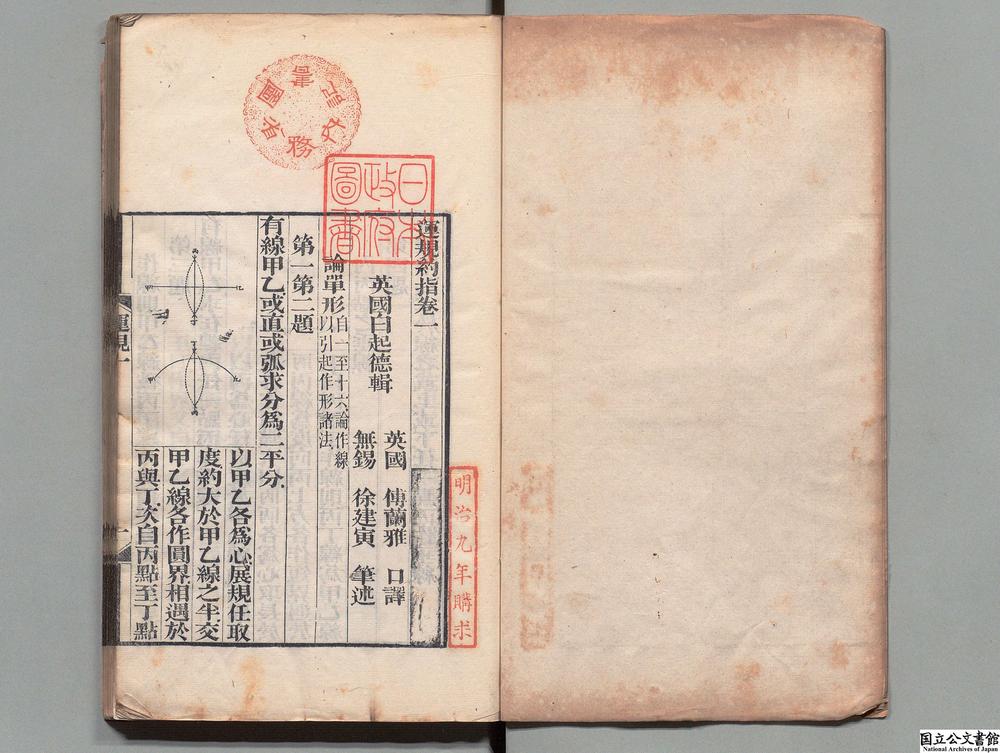 運規約指卷一
英國白起德輯
英國 傅蘭雅 口譯
無錫 徐建寅 筆述
論單形自一至十六論作線
以引起作形諸法
第一第二題
有線甲乙或直或弧求分爲二平分
以甲乙各爲心展規任取
度約大於甲乙線之半交
甲乙線各作圓界相遇於
丙與丁次自丙點至丁點
日本
政府
圖書
明治九年購求
国立公文書館
National Archives of Japan